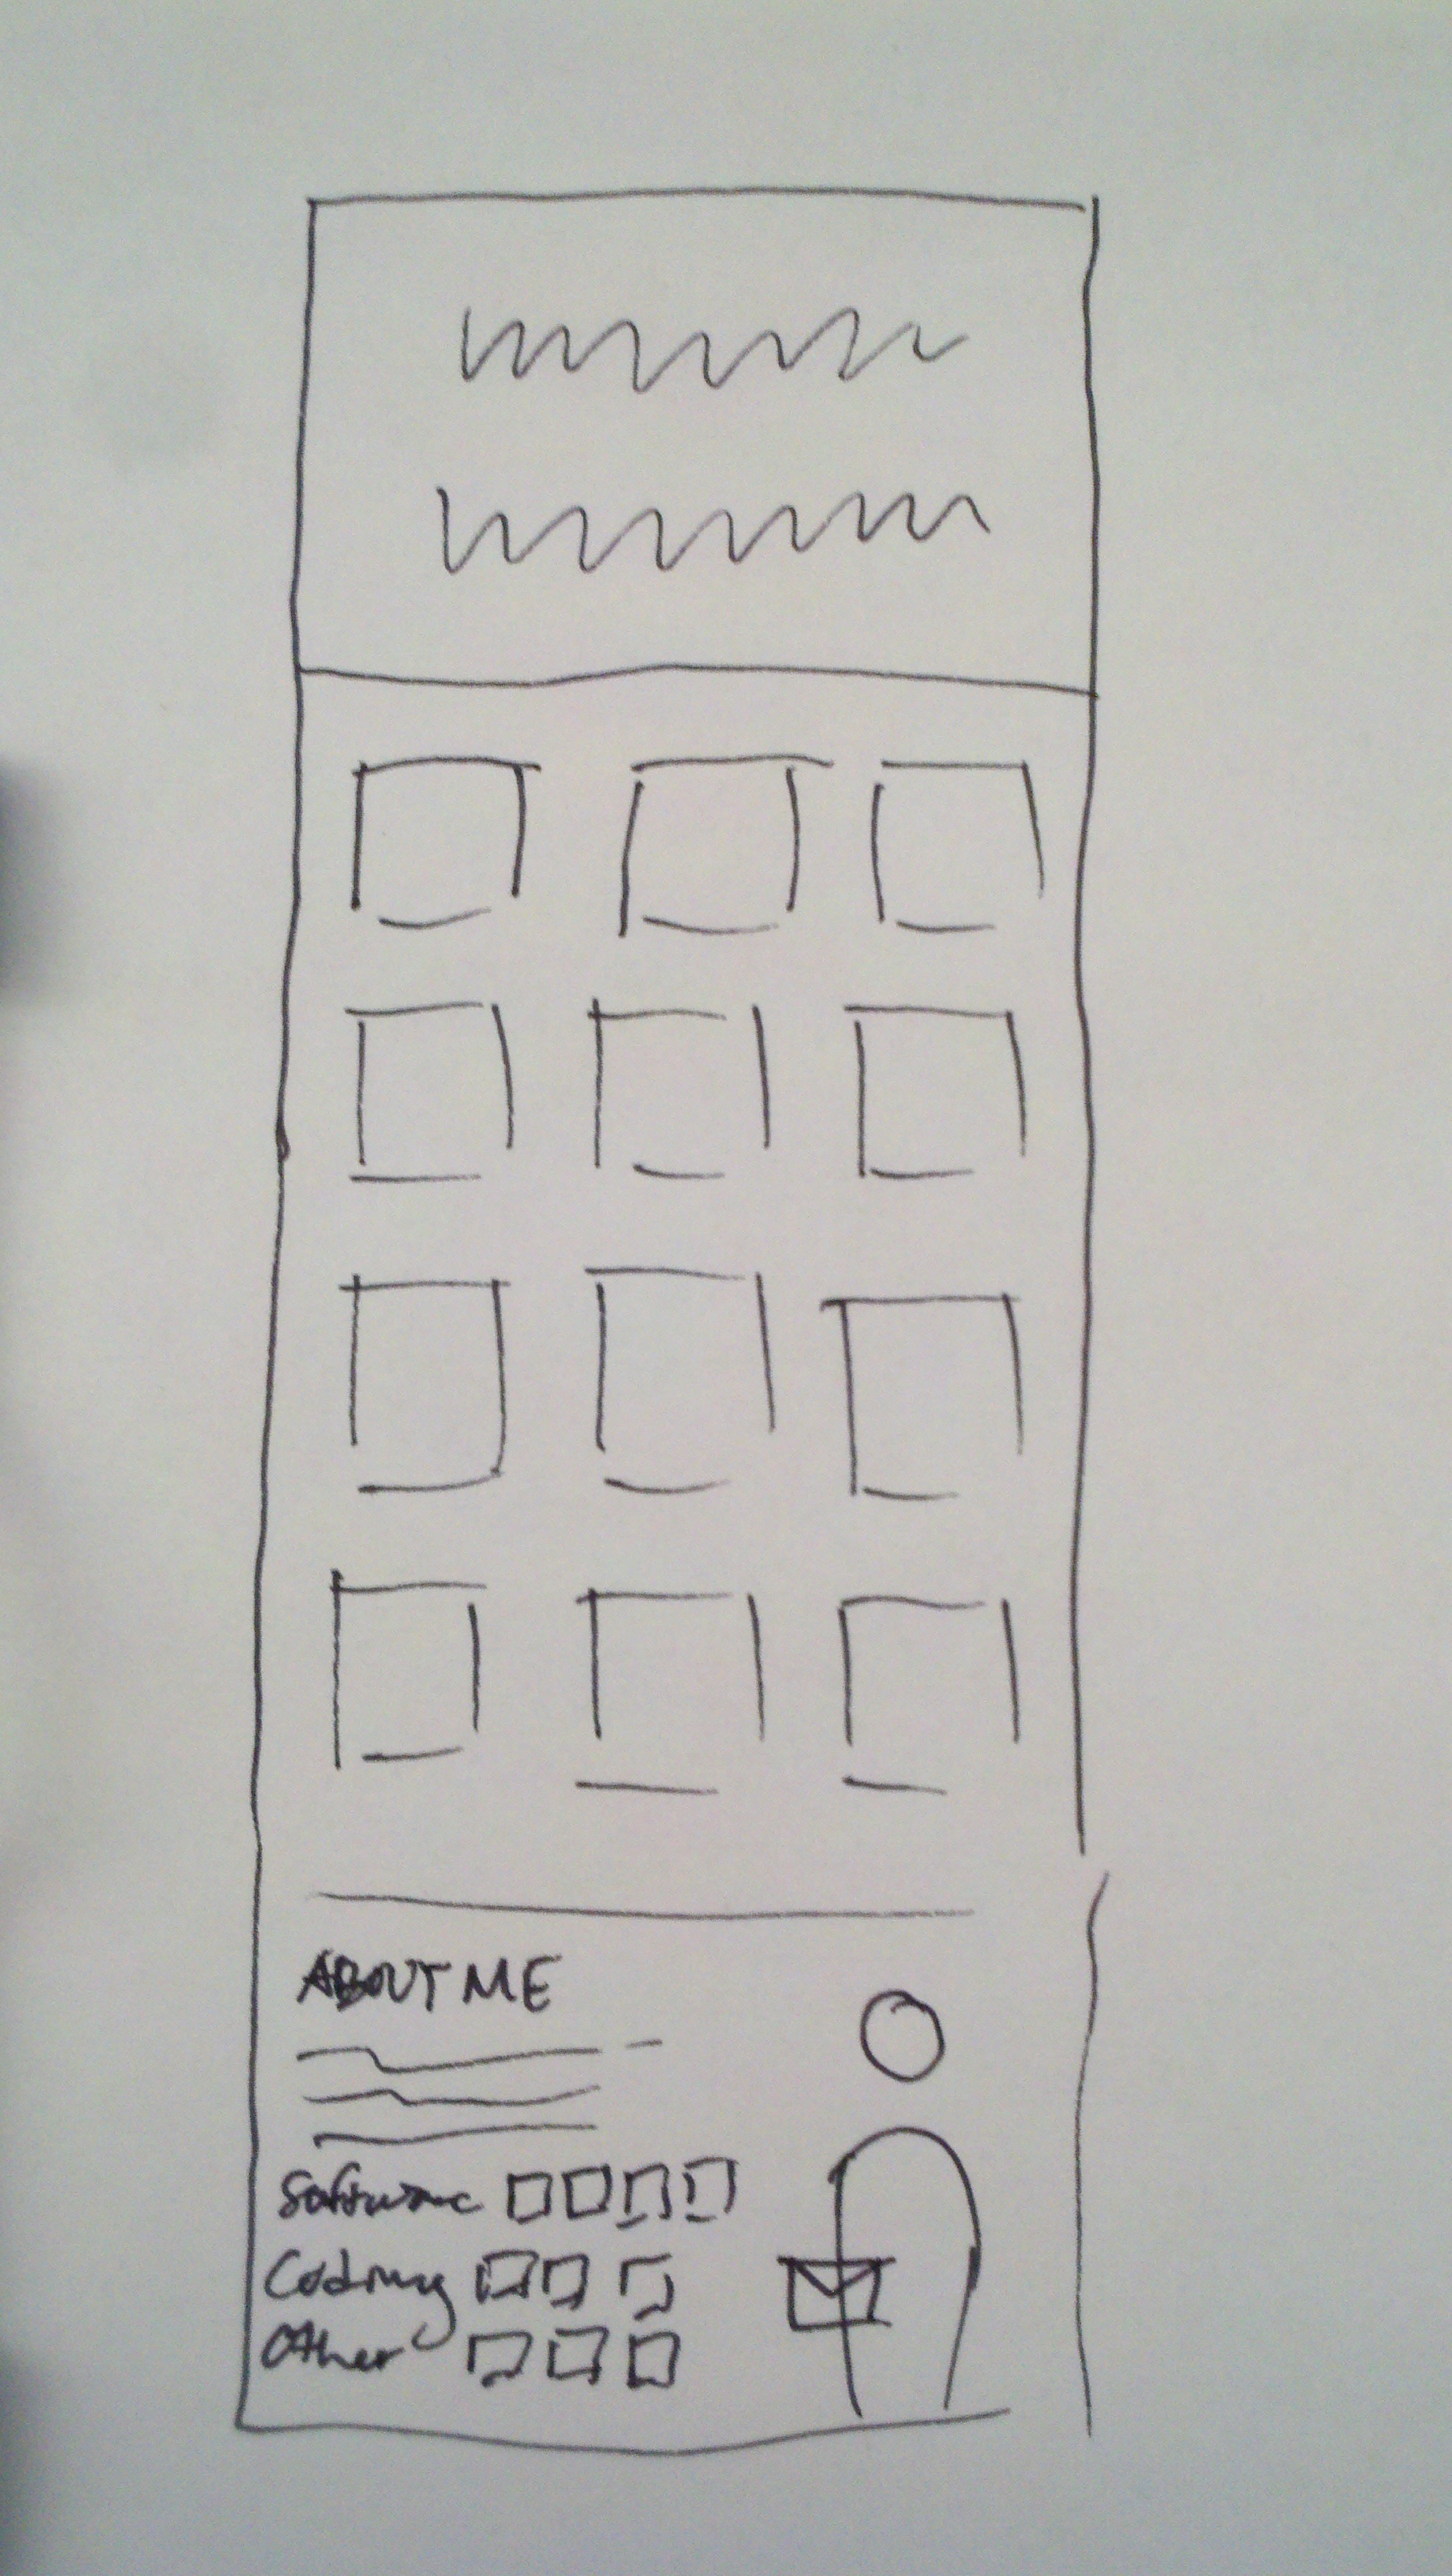 ABOUT ME
Software
Coding
Other